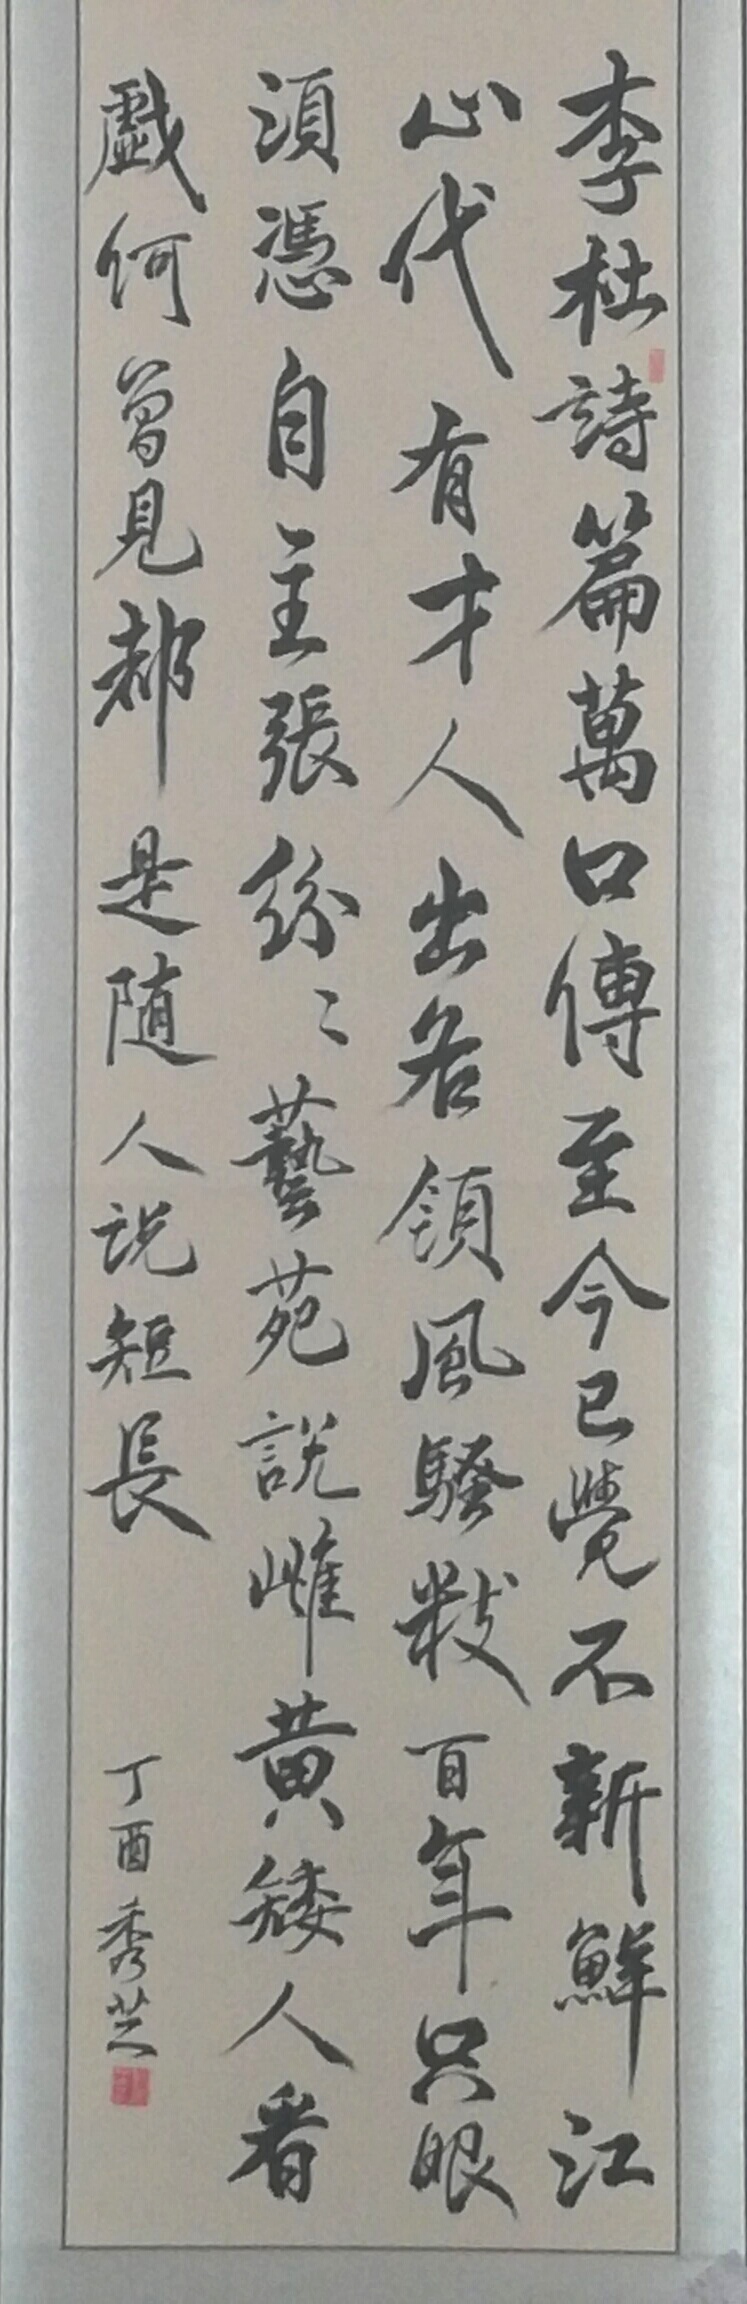 李杜詩篇萬口傳至今已覺不新鮮江
山代有才人出各領風騷数百年只眼
須憑自主張紛〻藝苑說雌黄矮人看
戯何曾見都是随人说短長
丁酉秀芝